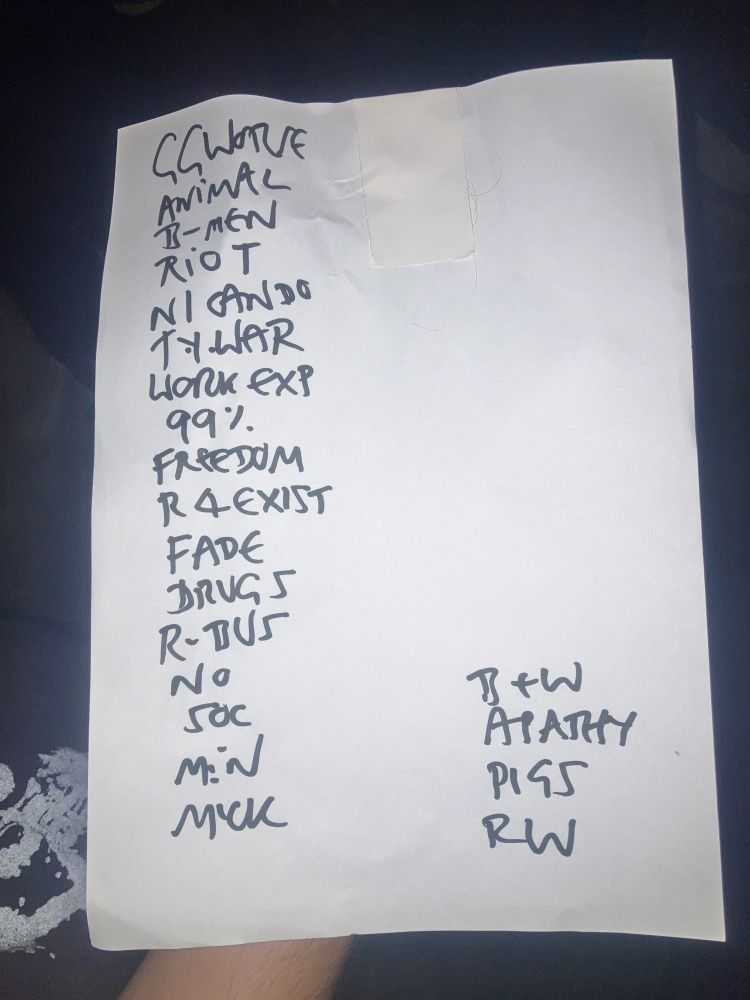 GGWORSE
ANIMAL
B-MEN
RIOT
NICANDO
T.Y.WAR
WORK EXP
99%
FREEDOM
R4EXIST
FADE
DRUGS
R-BUS
NO
SOC
MIN
MUCK
B+W
APATHY
PIGS
RW